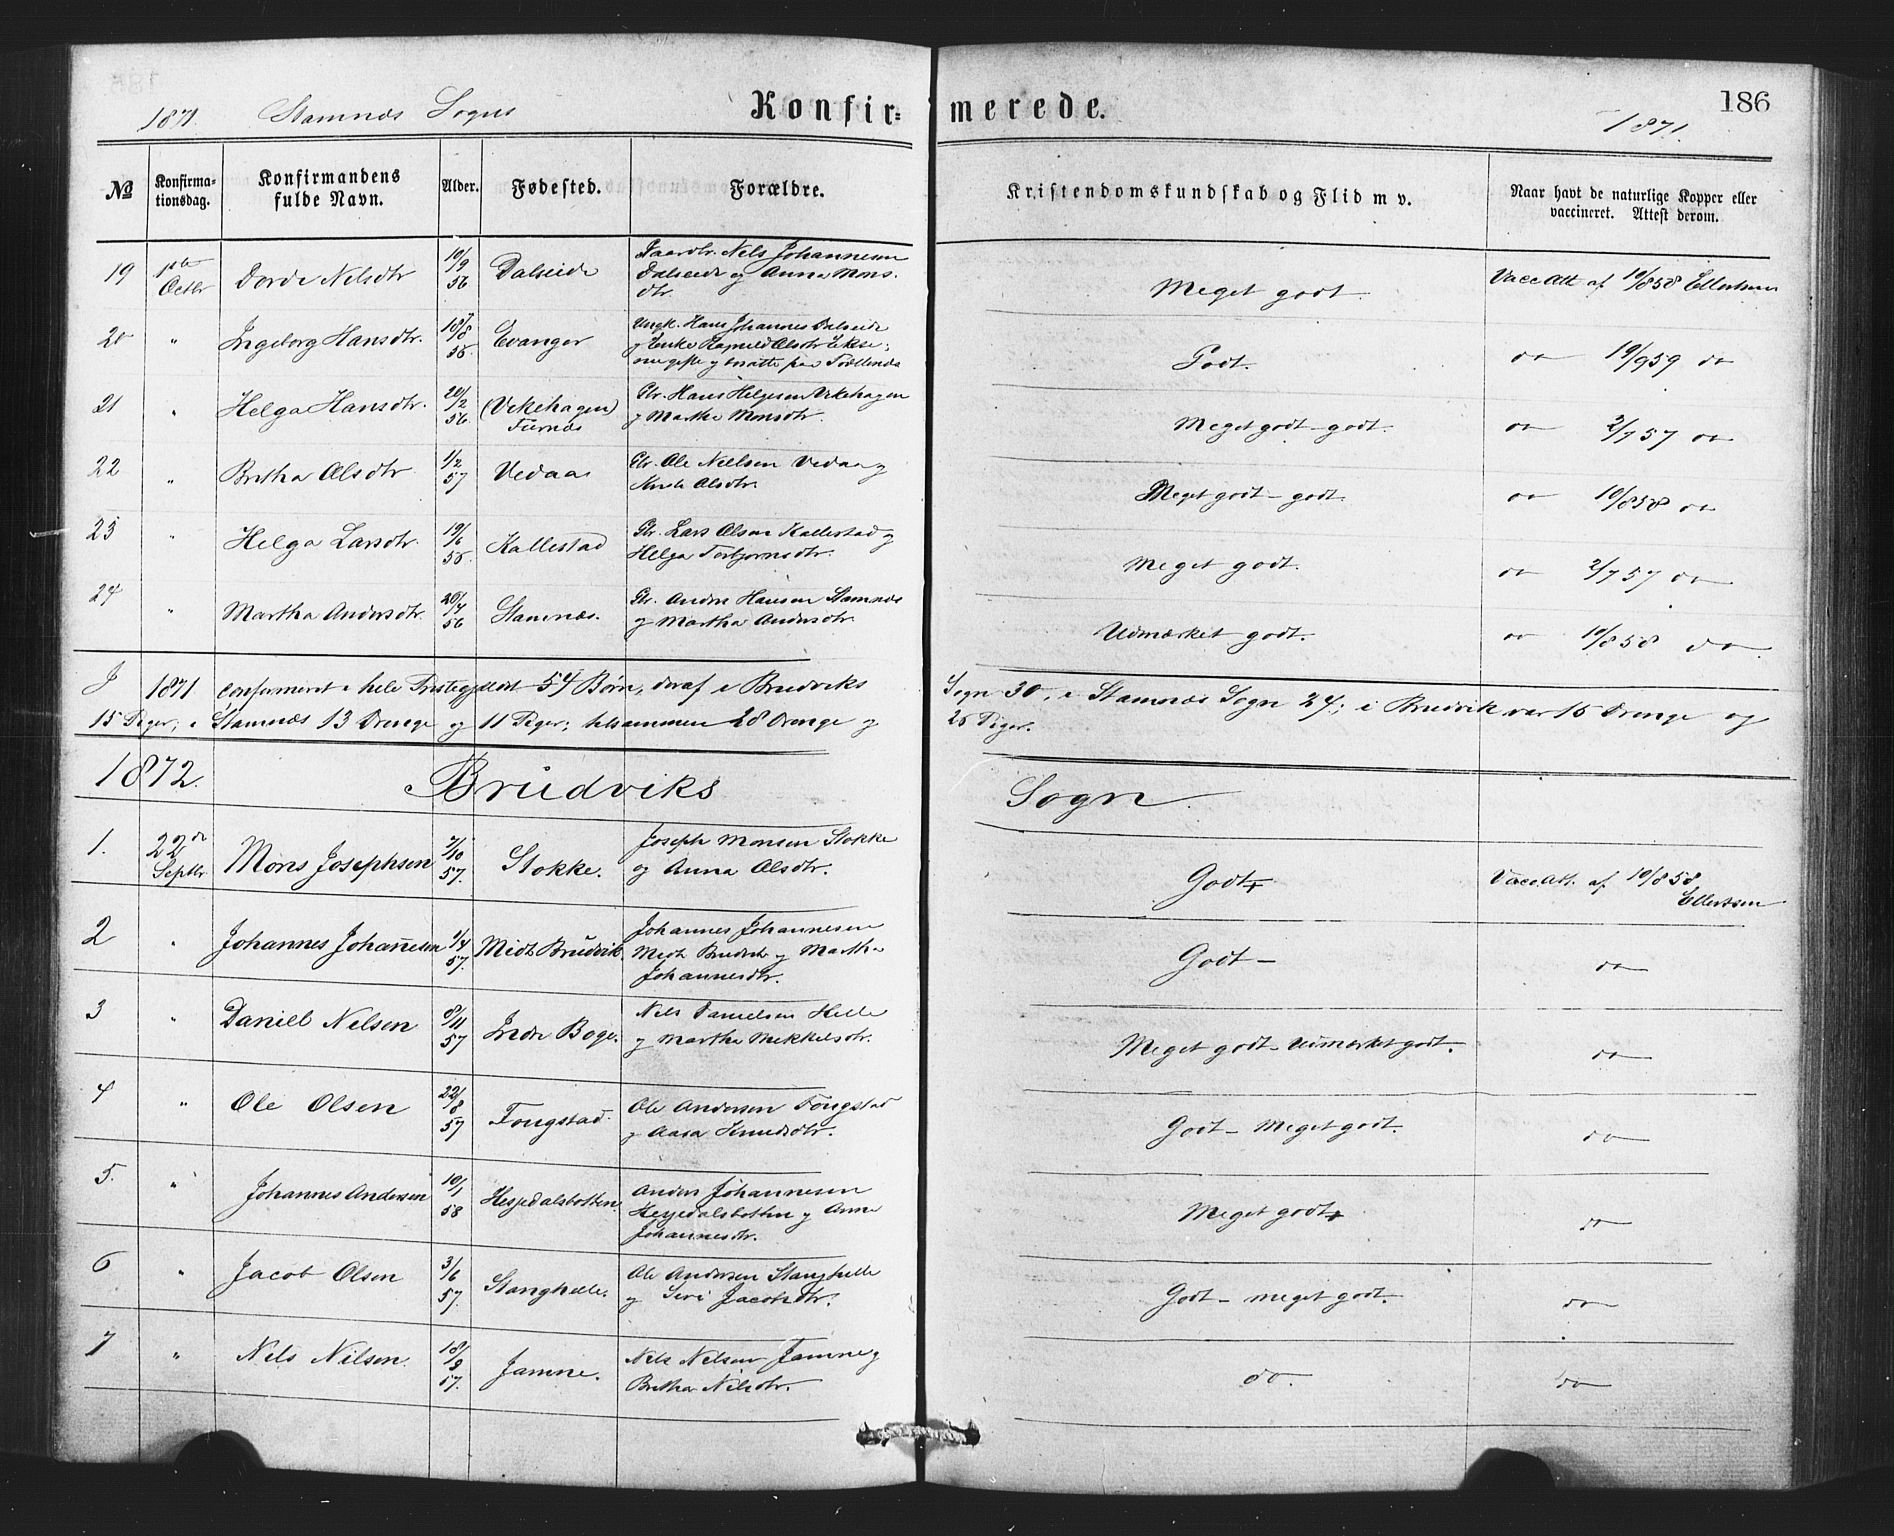 1871. Stamnes Sogns Konfirmerede. 1871. 186
No Konfirmationsdag. Konfirmandens fulde Navn. Alder. Fødested. Forældre. Kristendomskundskab og Flid m v. Naar havt de naturlige Kopper eller vaccineret. Attest derom.
19 1ste Octbr Dorde Nelsdtr 10/9 56 Dalseide Gaardbr. Nels Johannesen Dalseide og Anna Monsdtr. Meget godt. Vacc Att af 10/8 58 Ellertsen
20 " Ingeborg Hansdtr. 18/8 55. Evanger Ungk. Hans Johannes Dalseide og Enke Olsdtr Godt. do 10/9 59 do
21 " Helga Hansdtr. 20/2 56 (Vikehagen) Furnes Gbr. Hans Helgesen Vikehagen og Martha Monsdtr. Meget godt - godt. do 2/7 57 do
22 " Britha Olsdtr. 1/2 57 Vedaa Gbr. Ole Nielsen Vedaa og Olsdtr. Meget godt - godt. do 10/8 58 do
23 " Helga Larsdtr. 19/6 55. Kallestad Gbr. Lars Olsen Kallestad og Helga Torbjørnsdtr. Meget godt. do 2/7 57 do
24 " Martha Andersdtr. 20/4 56 Stamnes. Gbr. Anders Hansen Stamnes og Martha Andersdtr. Udmærket godt. do 10/8 58 do
I 1871 confirmeret i hele Præstegjeldet 54 Børn, deraf i Brudviks Sogn 30, i Stamnes Sogn 24; i Brudvik var 15 Drenge og
15 Piger; i Stamnæs 13 Drenge og 11 Piger; tilsammen 28 Drenge og 26 Piger.
1872. Brudviks Sogn.
1. 22de Septbr Mons Josephsen 7/10 57. Stokke. Joseph Monsen Stokke og Anna Olsdtr. Godt+ Vacc. Att. af 10/8 58 Ellertsen
2 " Johannes Johannesen 1/4 57. Midt Brudvik. Johannes Johannesen Midt Brudvik og Martha Johannesdtr. Godt - do
3 " Daniel Nelsen 8/11 57 Indre Boge. Nels Danielsen Helle og Martha Mikkelsdtr. Meget godt - Udmærket godt. do
4 " Ole Olsen 22/8 57 Fougstad Ole Andersen Fougstad og Aasa Knudsdtr. Godt - Meget godt. do
5. " Johannes Andersen 10/1 58 Hesjedalsbotten. Anders Johannesen Hesjedalsbotten og Anna Johannesdtr. Meget godt+ do
6 " Jacob Olsen 3/6 57. Stanghelle. Ole Andersen Stanghelle og Siri Jacobsdtr. Godt - meget godt. do
7 " Nels Nilsen. 18/9 57. Jamne. Nels Nelsen Jamne og Britha Nilsdtr. do. do